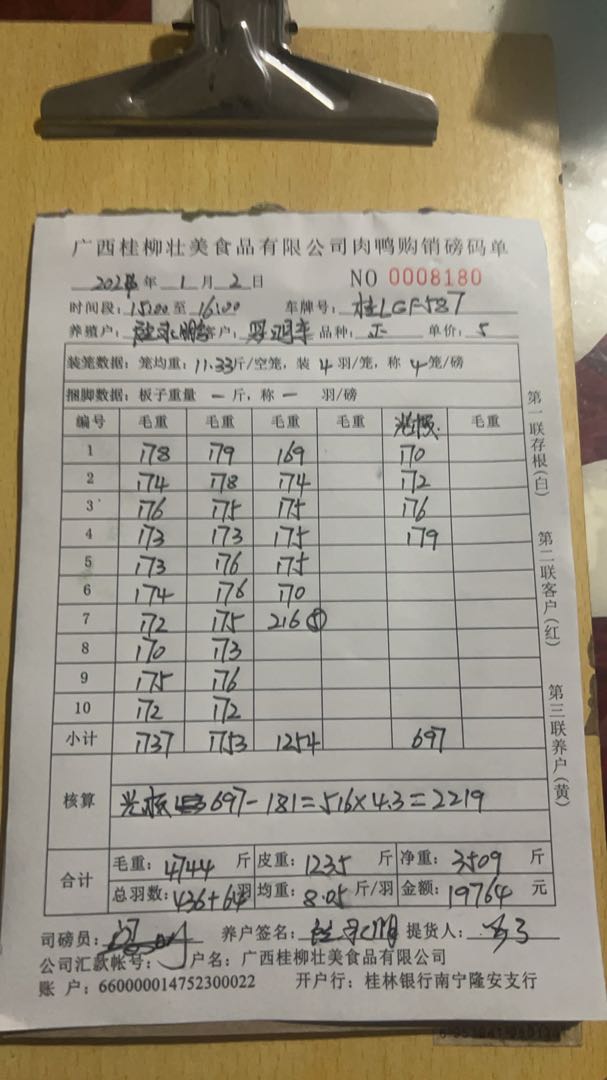 广西桂柳壮美食品有限公司肉鸭购销磅码单
年 1 月 2 日 NO 0008180
时间段: 15:00 至 16:00 车牌号: 桂LGF587
养殖户: 客户: 品种: 正 单价: 5
装笼数据: 笼均重: 11.33斤/空笼, 装 4 羽/笼, 称 4 笼/磅
捆脚数据: 板子重量 一 斤, 称 一 羽/磅
编号 毛重 毛重 毛重 毛重 毛重
1 178 179 169 170
2 174 178 174 172
3 176 175 175 176
4 173 173 175 179
5 173 176 175
6 174 176 170
7 172 175 216⑤
8 170 173
9 175 176
10 172 172
小计 1737 1753 1254 697
核算 697-181=516×4.3=2219
合计 毛重: 4744 斤 皮重: 1235 斤 净重: 3509 斤
总羽数: 436+64羽 均重: 8.05斤/羽 金额: 19764 元
司磅员: 养户签名: 提货人:
公司汇款帐号: 户名: 广西桂柳壮美食品有限公司
账 户: 660000014752300022 开户行: 桂林银行南宁隆安支行
第一联存根(白)
第二联客户(红)
第三联养户(黄)